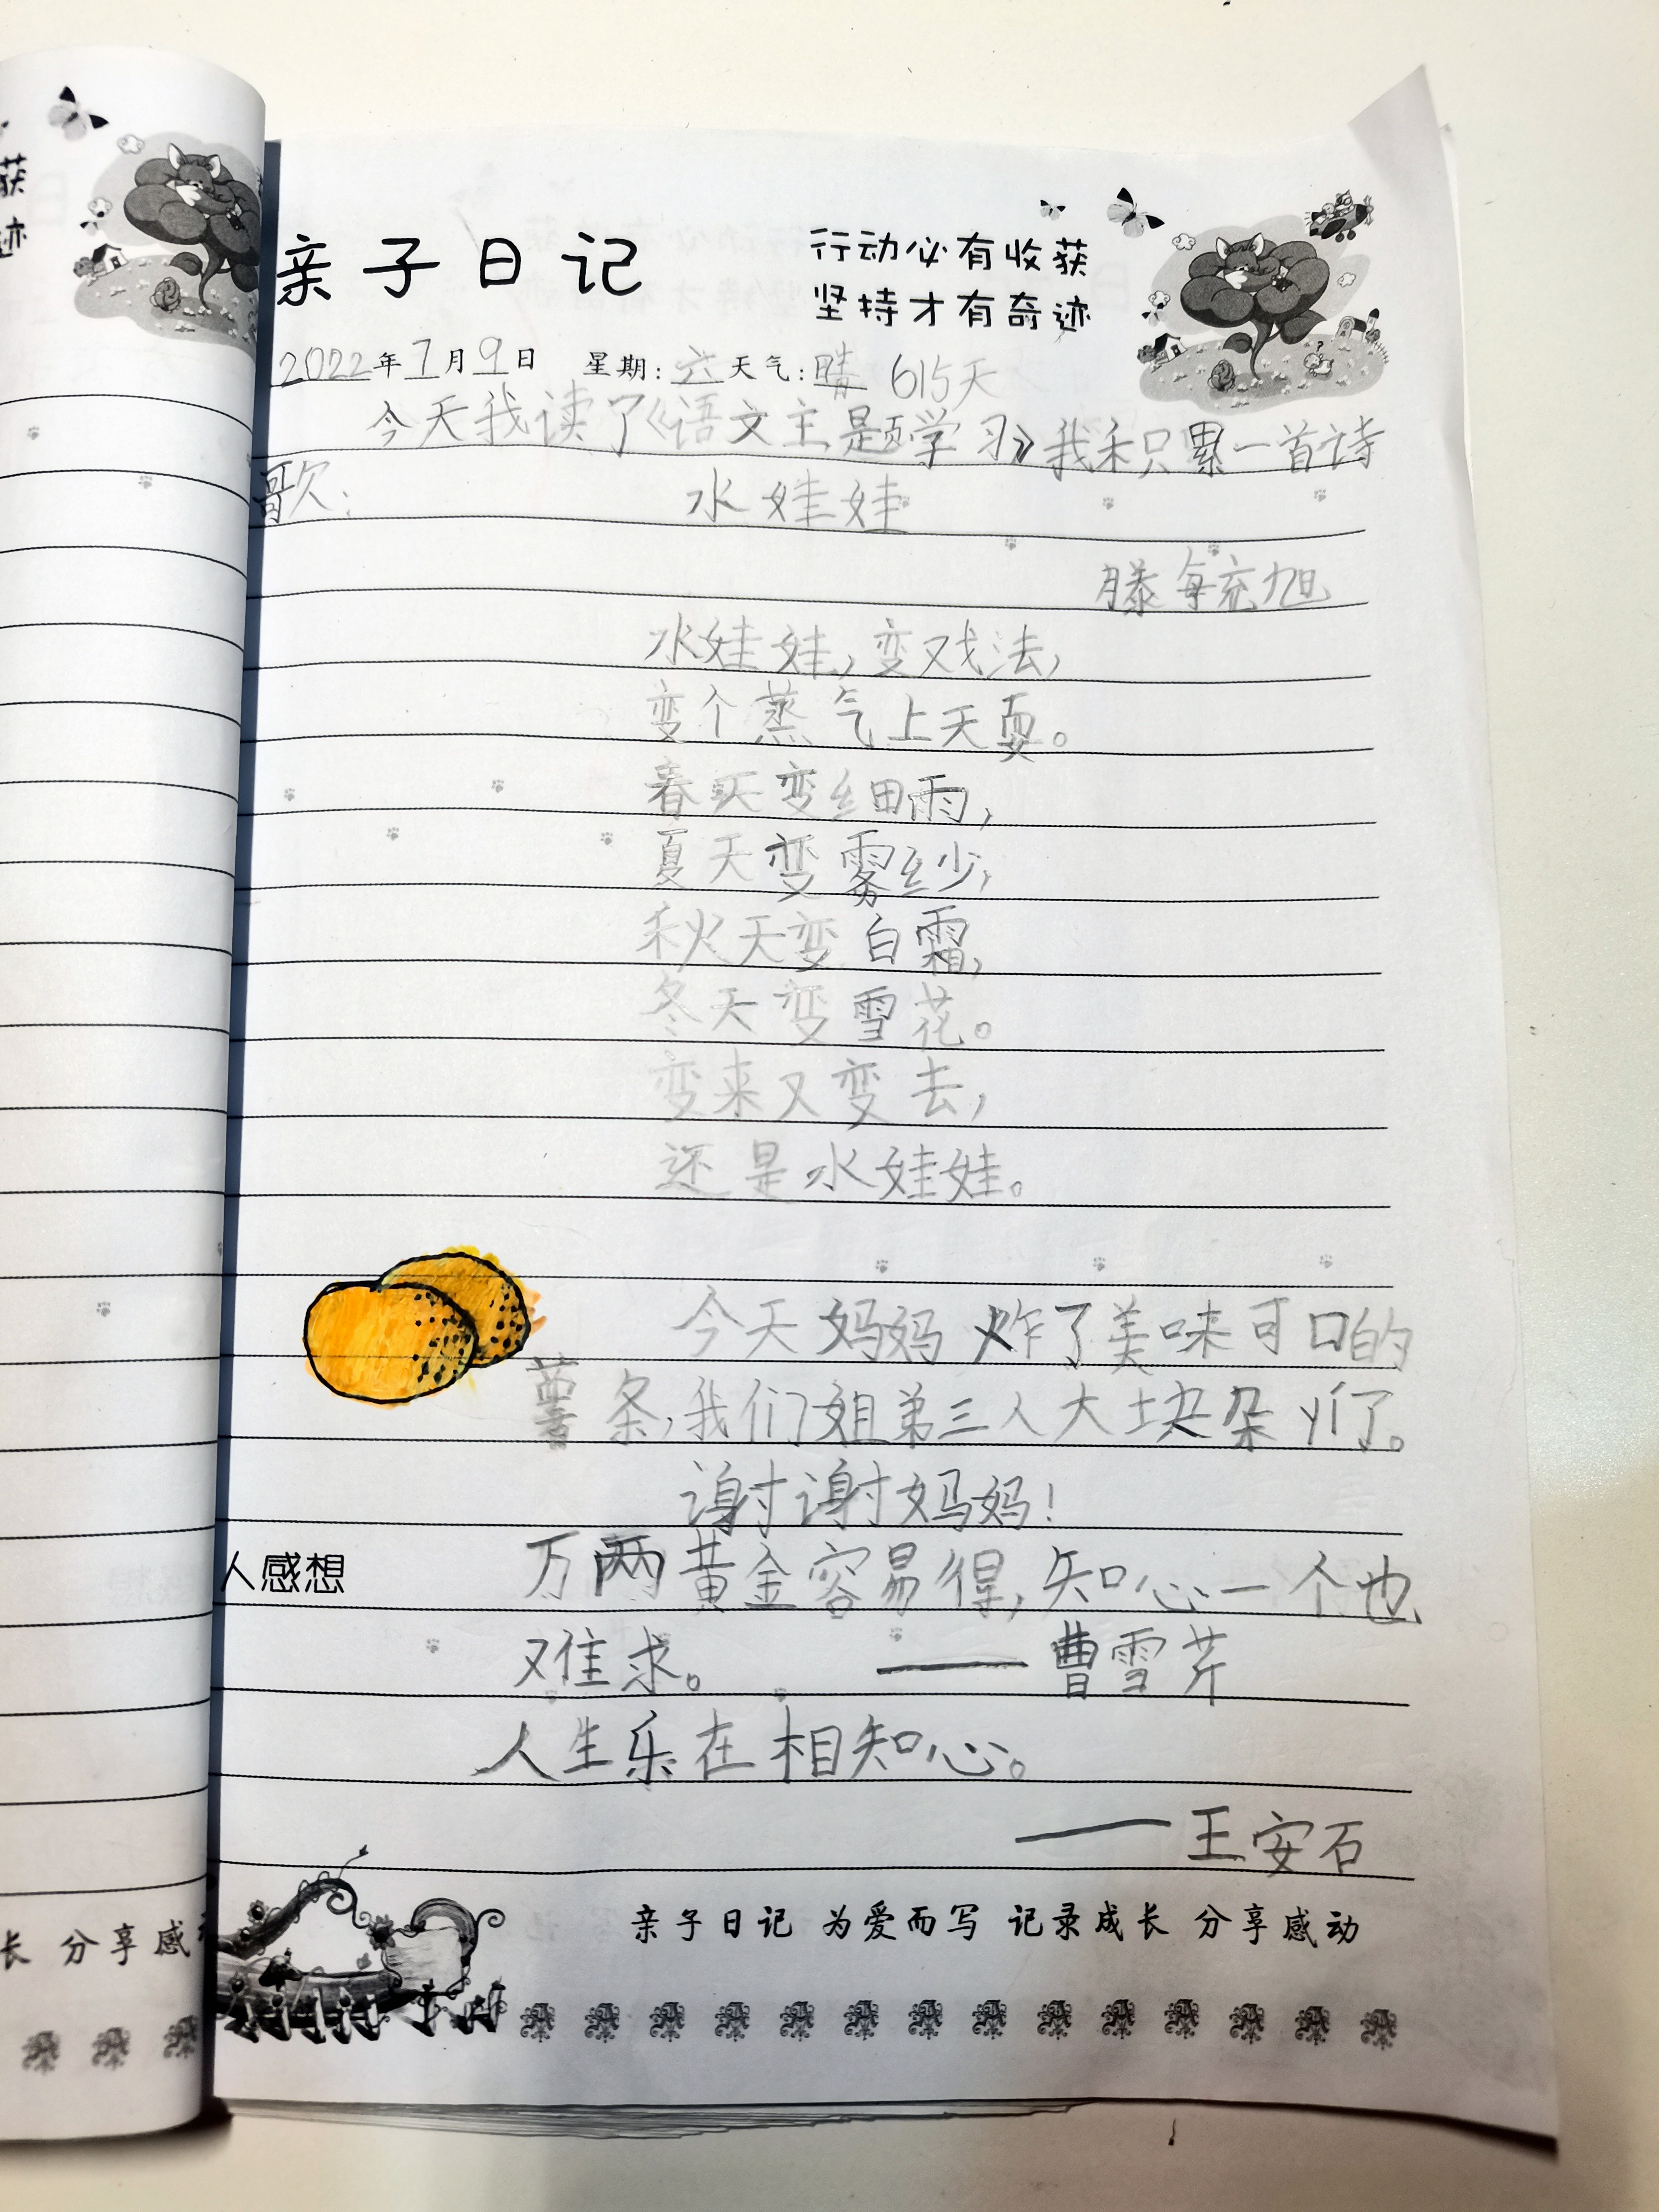 获
迹
亲子日记
行动必有收获
坚持才有奇迹
2022年7月9日 星期:六 天气:晴 615天
今天我读了《语文主题学习》我积累一首诗
歌:
水娃娃
滕毓旭
水娃娃,变戏法,
变个蒸气上天耍。
春天变细雨,
夏天变雾纱,
秋天变白霜,
冬天变雪花。
变来又变去,
还是水娃娃。
今天妈妈炸了美味可口的
薯条,我们姐弟三人大块朵
了。
谢谢妈妈!
人感想
万两黄金容易得,知心一个也
难求。 ——曹雪芹
人生乐在相知心。
——王安石
亲子日记 为爱而写 记录成长 分享感动
长 分享感